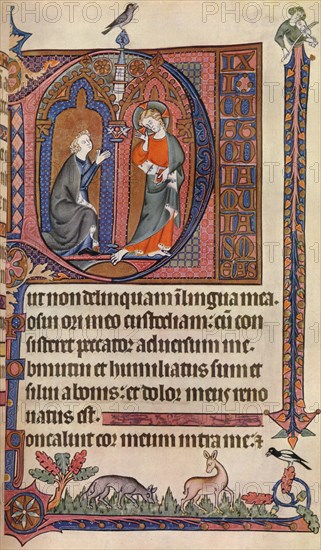 D IXI
EAS
ut non delinquam ī lingua mea.
Posui ori meo custodiam: cū con
sisteret peccator aduersum me.
Obmutui et humiliatus sum et
silui a bonis: et dolor meus reno
uatus est.
Concaluit cor meum intra me: ⁊